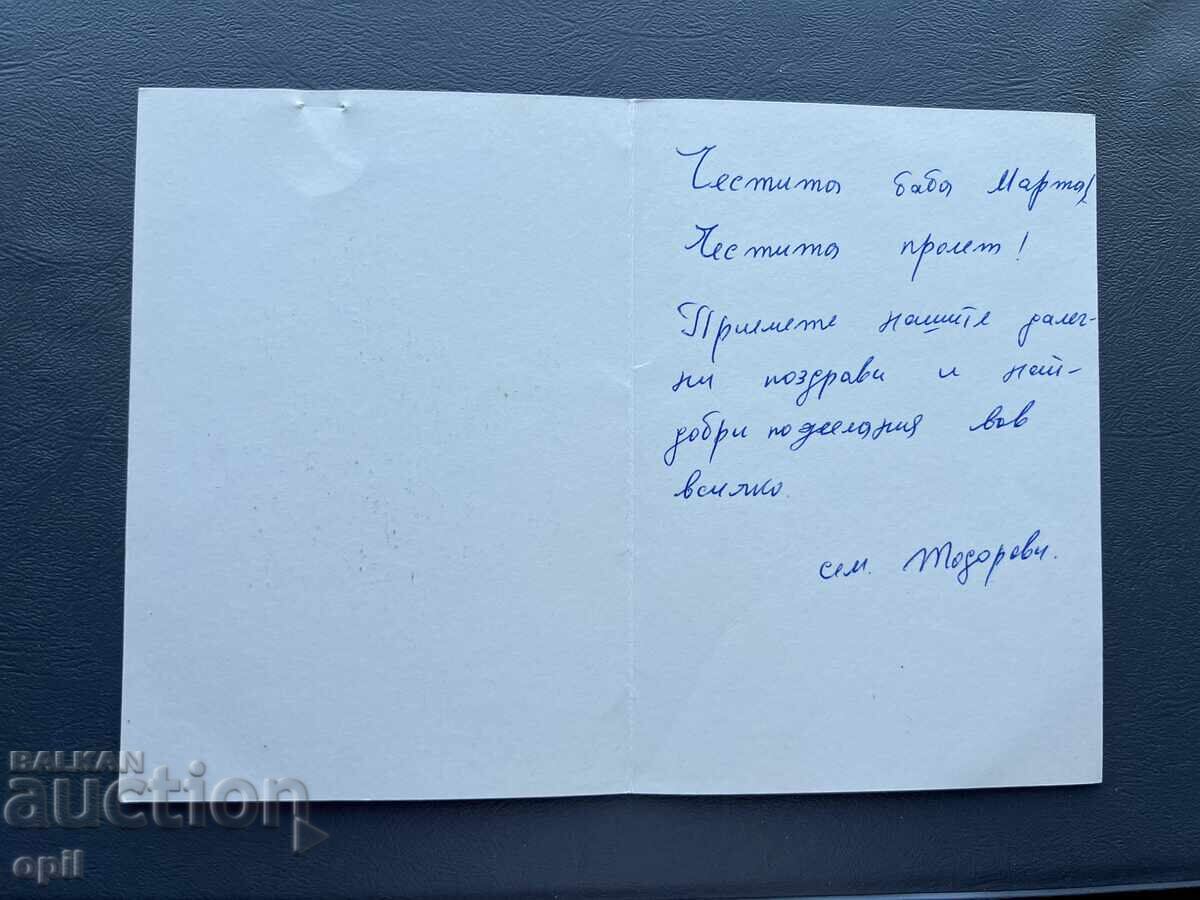 Честита баба Марта!
Честита пролет!
Приемете нашите далеч-
ни поздрави и най-
добри пожелания във
всичко.
сем. Тодорови.
BALKAN
auction
opil